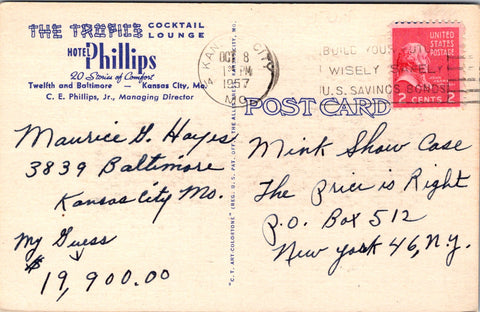 THE TROPICS COCKTAIL LOUNGE
HOTEL Phillips
20 Stories of Comfort
Twelfth and Baltimore — Kansas City, Mo.
C. E. Phillips, Jr., Managing Director
KANSAS CITY
OCT 8
PM
1957
MO.
BUILD YOUR
WISELY SAFELY
U.S. SAVINGS BONDS
UNITED STATES POSTAGE
2 CENTS 2
POST CARD
Maurice G. Hayes
3839 Baltimore
Kansas City Mo.
My Guess
$19,900.00
"C. T. ART-COLORTONE" (REG. U. S. PAT. OFF.)
Mink Show Case
The Price is Right
P.O. Box 512
New York 46, N.Y.